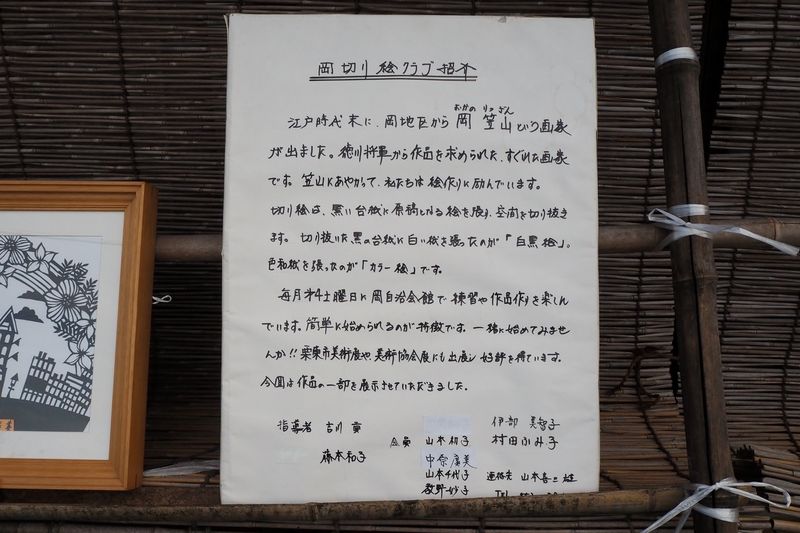 岡切り絵クラブ紹介
おかの りつざん
江戸時代末に、岡地区から 岡 笠山 という画家
が出ました。徳川将軍から作品を求められた、すぐれた画家
です。笠山にあやかって、私たちは絵作りに励んでいます。
切り絵は、黒い台紙に原稿となる絵を張り、空間を切り抜き
ます。切り抜いた黒の台紙に白い紙を張ったのが「白黒絵」。
色和紙を張ったのが「カラー絵」です。
毎月第4土曜日に岡自治会館で練習や作品作りを楽しん
でいます。簡単に始められるのが特徴です。一緒に始めてみませ
んか!! 栗東市美術展や、美術協会展にも出展し好評を得ています。
今回は作品の一部を展示させていただきました。
指導者 吉川 實
藤本和子
会員 山本初子
中奈廣美
山本千代子
教野妙子
伊部 美智子
村田ふみ子
連絡先 山本喜三雄
TEL